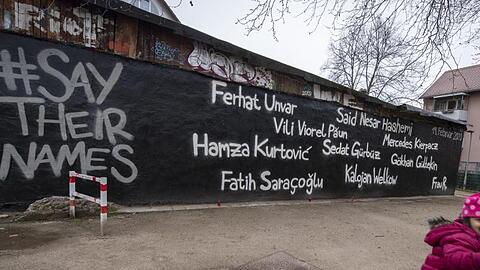 #SAY
THEIR
NAMES
Ferhat Unvar
Said Nesar Hashemi
19. Februar 2020
Vili Viorel Păun
Mercedes Kierpacz
Hamza Kurtović
Sedat Gürbüz
Gökhan Gültekin
Fatih Saraçoğlu
Kalojan Velkov